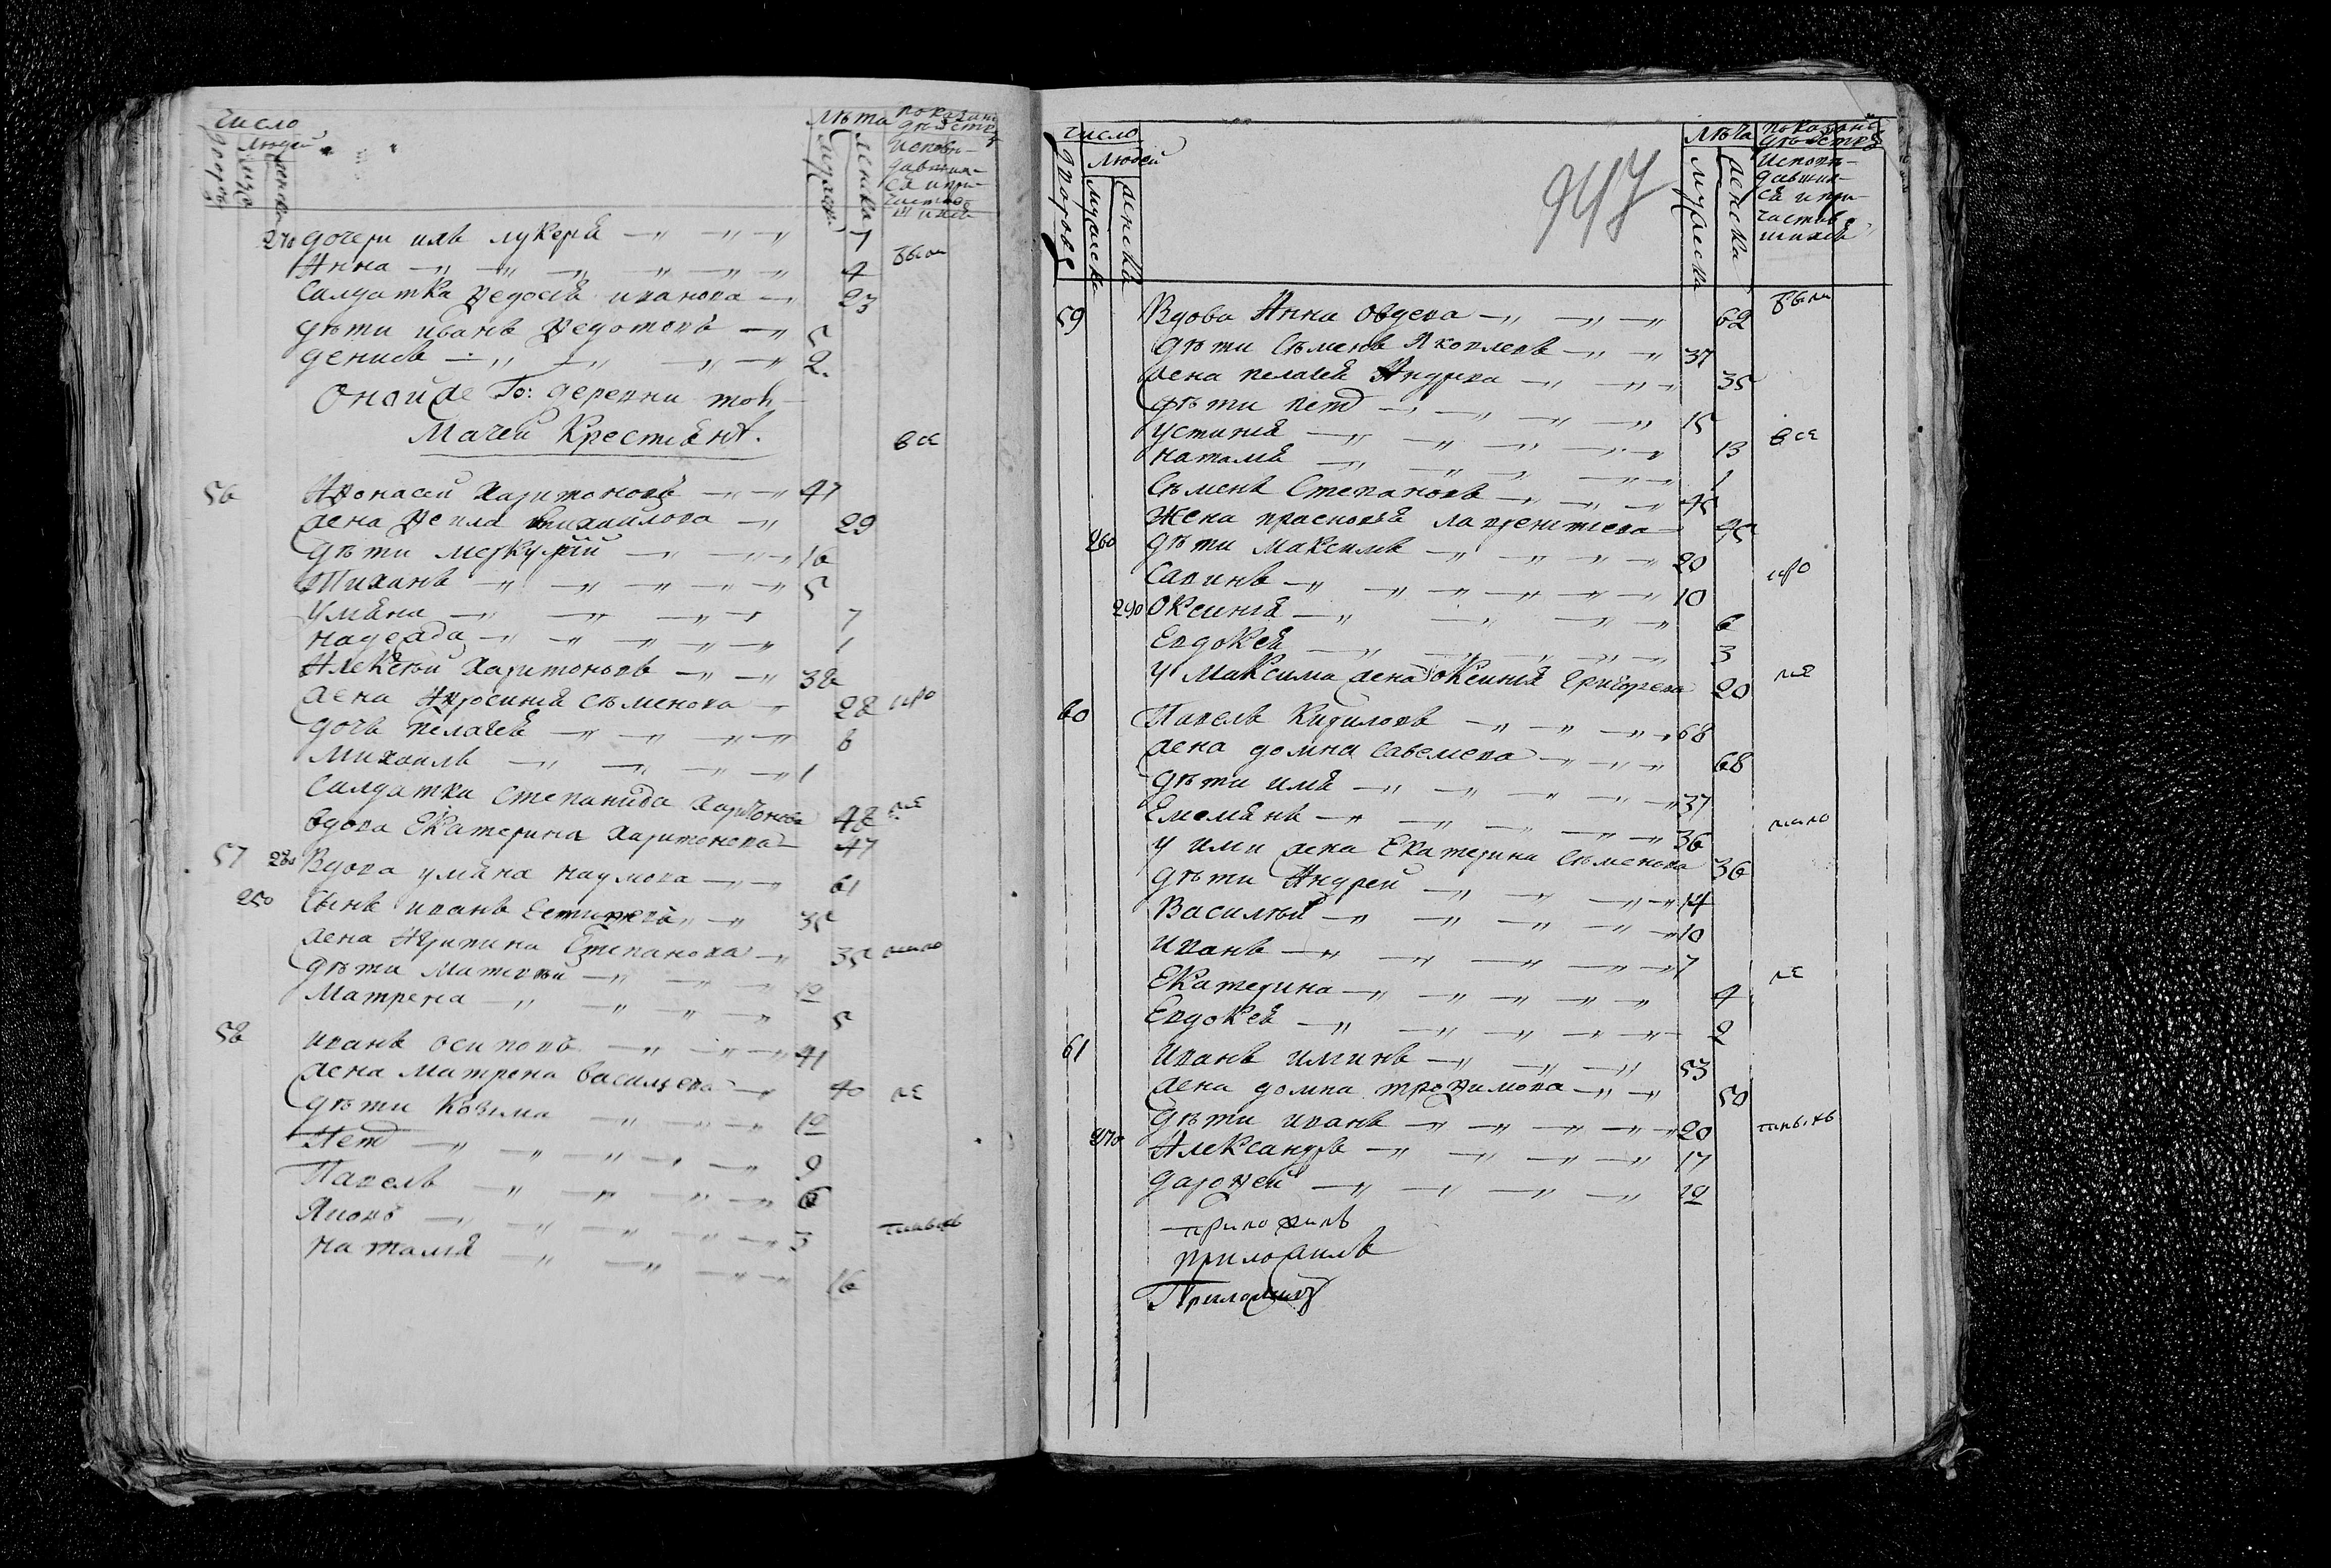 число
людей
лѣта
показани
дѣйство
Исповѣ-
давшия-
ся и при-
частив
шихся
270 дочери ихъ лукеря 7
Анна 4
были
Салдатка Ѳедосья иванова 23
дѣти иванъ Ѳедотовъ 5
денисъ 2
Оной же Го: деревни
Крестьянъ.
все
56 Афонасей Харитоновъ 47
жена михаилова 29
дѣти меркурий 16
Тиханъ 5
Ульяна 7
надежда 1
Алексѣй Харитоновъ 38
жена Афросинья сѣменова 28
иро
дочь пелагея 8
Михаилъ 1
Салдатка степанида Харитонова 48
ле
вдова Екатерина харитонова 47
57 280 Вдова ульяна наумова 61
250 Сынъ иванъ 35
жена Степанова 35
дѣти Матвѣй 10
Матрена 5
58 иванъ осиповъ 41
жена матрена василева 40
ле
дѣти Козьма 10
Петр 9
Павелъ 6
Яковъ 3
наталя 16
число
людей
дворовъ
мужеска
женска
лѣта
мужеска
женска
показани
дѣйство
Исповѣ-
давшия-
ся и при-
частив
шихся
947
59 Вдова Анна Овдева 62
были
дѣти Сѣменъ Яковлевъ 37
жена пелагея Андрева 35
дѣти петр 15
устиния 13
все
наталя 1
Сѣменъ Степановъ 45
Жена прасковья лаврентиева 45
260 дѣти Максимъ 20
Савинъ 10
иро
290 Оксиния 6
Евдокея 3
У Максима жена Оксиния Григорева 20
ле
60 Павелъ Кириловъ 68
жена домна Савелева 68
дѣти илья 37
Емельянъ 36
У или жена Екатерина Сѣменова 36
дѣти Андрей 14
Василѣй 10
иванъ 7
Екатерина 4
ле
Евдокея 2
61 Иванъ илинъ 53
жена домна трофимова 50
дѣти иванъ 20
270 Александръ 17
дарофей 10
приложилъ
приложилъ
Приложилъ